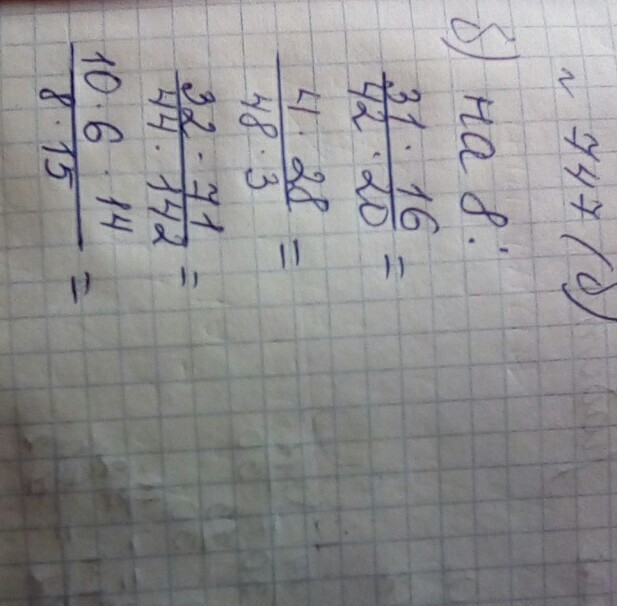 ~ 747 (б)
б) на 8:
31 · 16
42 · 20 =
41 · 28
48 · 3 =
32 · 71
44 · 142 =
10 · 6 · 14
8 · 15 =